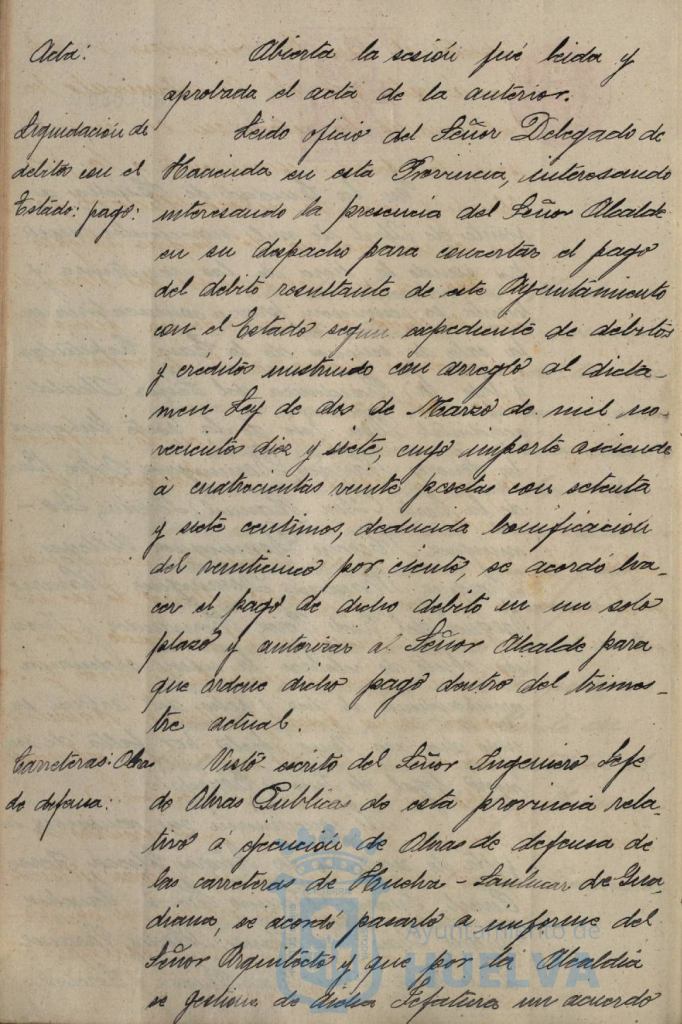 Acta:
Abierta la sesión fué leida y
aprobada el acta de la anterior.
Liquidación de
debitos con el
Estado: pago:
Leido oficio del Señor Delegado de
Hacienda en esta Provincia, interesando
interesando la presencia del Señor Alcalde
en su despacho para concertar el pago
del debito resultante de este Ayuntamiento
con el Estado según expediente de débitos
y créditos instruido con arreglo al dicta-
men Ley de dos de Marzo de mil no-
vecientos diez y siete, cuyo importe asciende
á cuatrocientas veinte pesetas con setenta
y siete centimos, deducida bonificación
del veinticinco por ciento, se acordó ha-
cer el pago de dicho debito en un solo
plazo y autorizar al Señor Alcalde para
que ordene dicho pago dentro del trimes-
tre actual.
Carreteras: Obras
de defensa:
Visto escrito del Señor Ingeniero Jefe
de Obras Publicas de esta provincia rela-
tivo á ejecución de Obras de defensa de
las carreteras de Huelva - Sanlucar de Gua-
diana, se acordó pasarlo a informe del
Señor Arquitecto y que por la Alcaldia
se gestione de dicha Jefatura un acuerdo
Ayuntamiento de
HUELVA